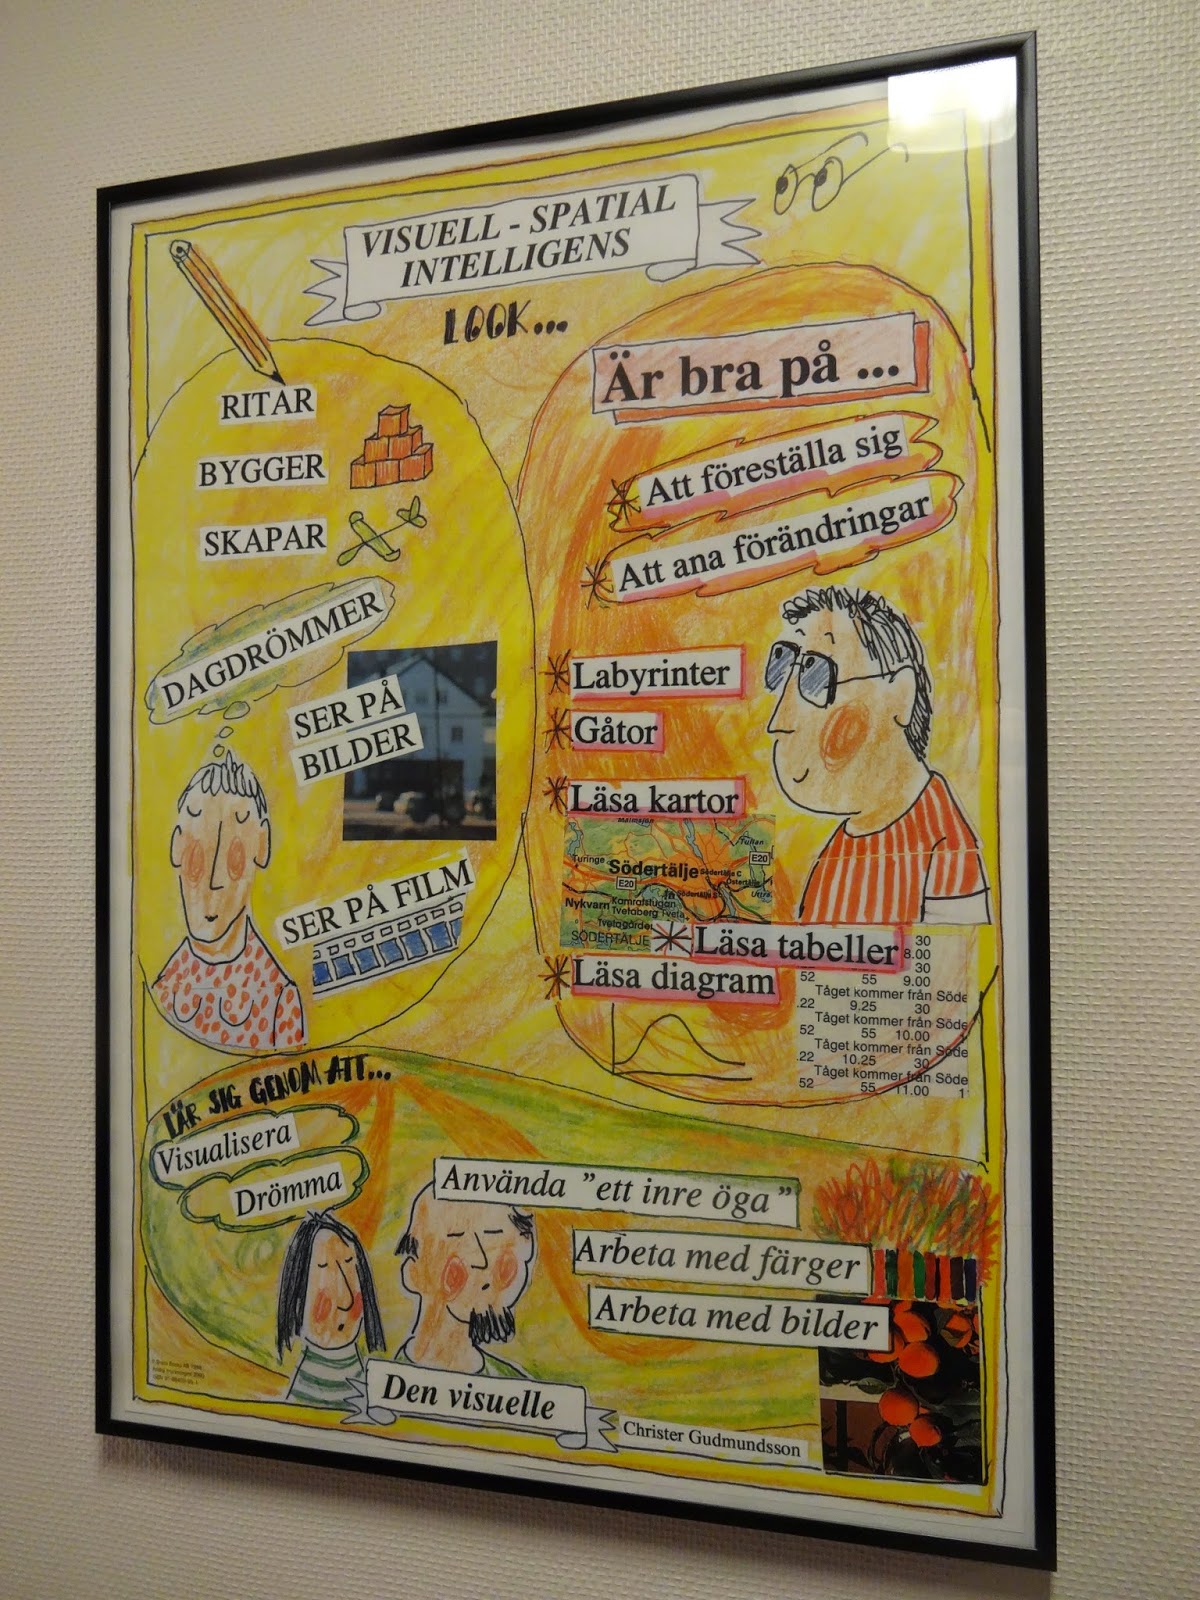 VISUELL - SPATIAL
INTELLIGENS
LOOK...
RITAR
BYGGER
SKAPAR
DAGDRÖMMER
SER PÅ
BILDER
SER PÅ FILM
Är bra på ...
Att föreställa sig
Att ana förändringar
Labyrinter
Gåtor
Läsa kartor
Malmsjön
Turinge
Södertälje
E20
E20
Södertälje C
Nykvarn
Kamrafstugan
Tvetaberg
Tveta
SÖDERTÄLJE
Läsa tabeller
Läsa diagram
30
8.00
30
52 55 9.00
Tåget kommer från Söde
.22 9.25 30
Tåget kommer från Söde
52 55 10.00
Tåget kommer från Söde
.22 10.25 30
Tåget kommer från Söde
52 55 11.00 1
LÄR SIG GENOM ATT...
Visualisera
Drömma
Använda "ett inre öga"
Arbeta med färger
Arbeta med bilder
Den visuelle
Christer Gudmundsson